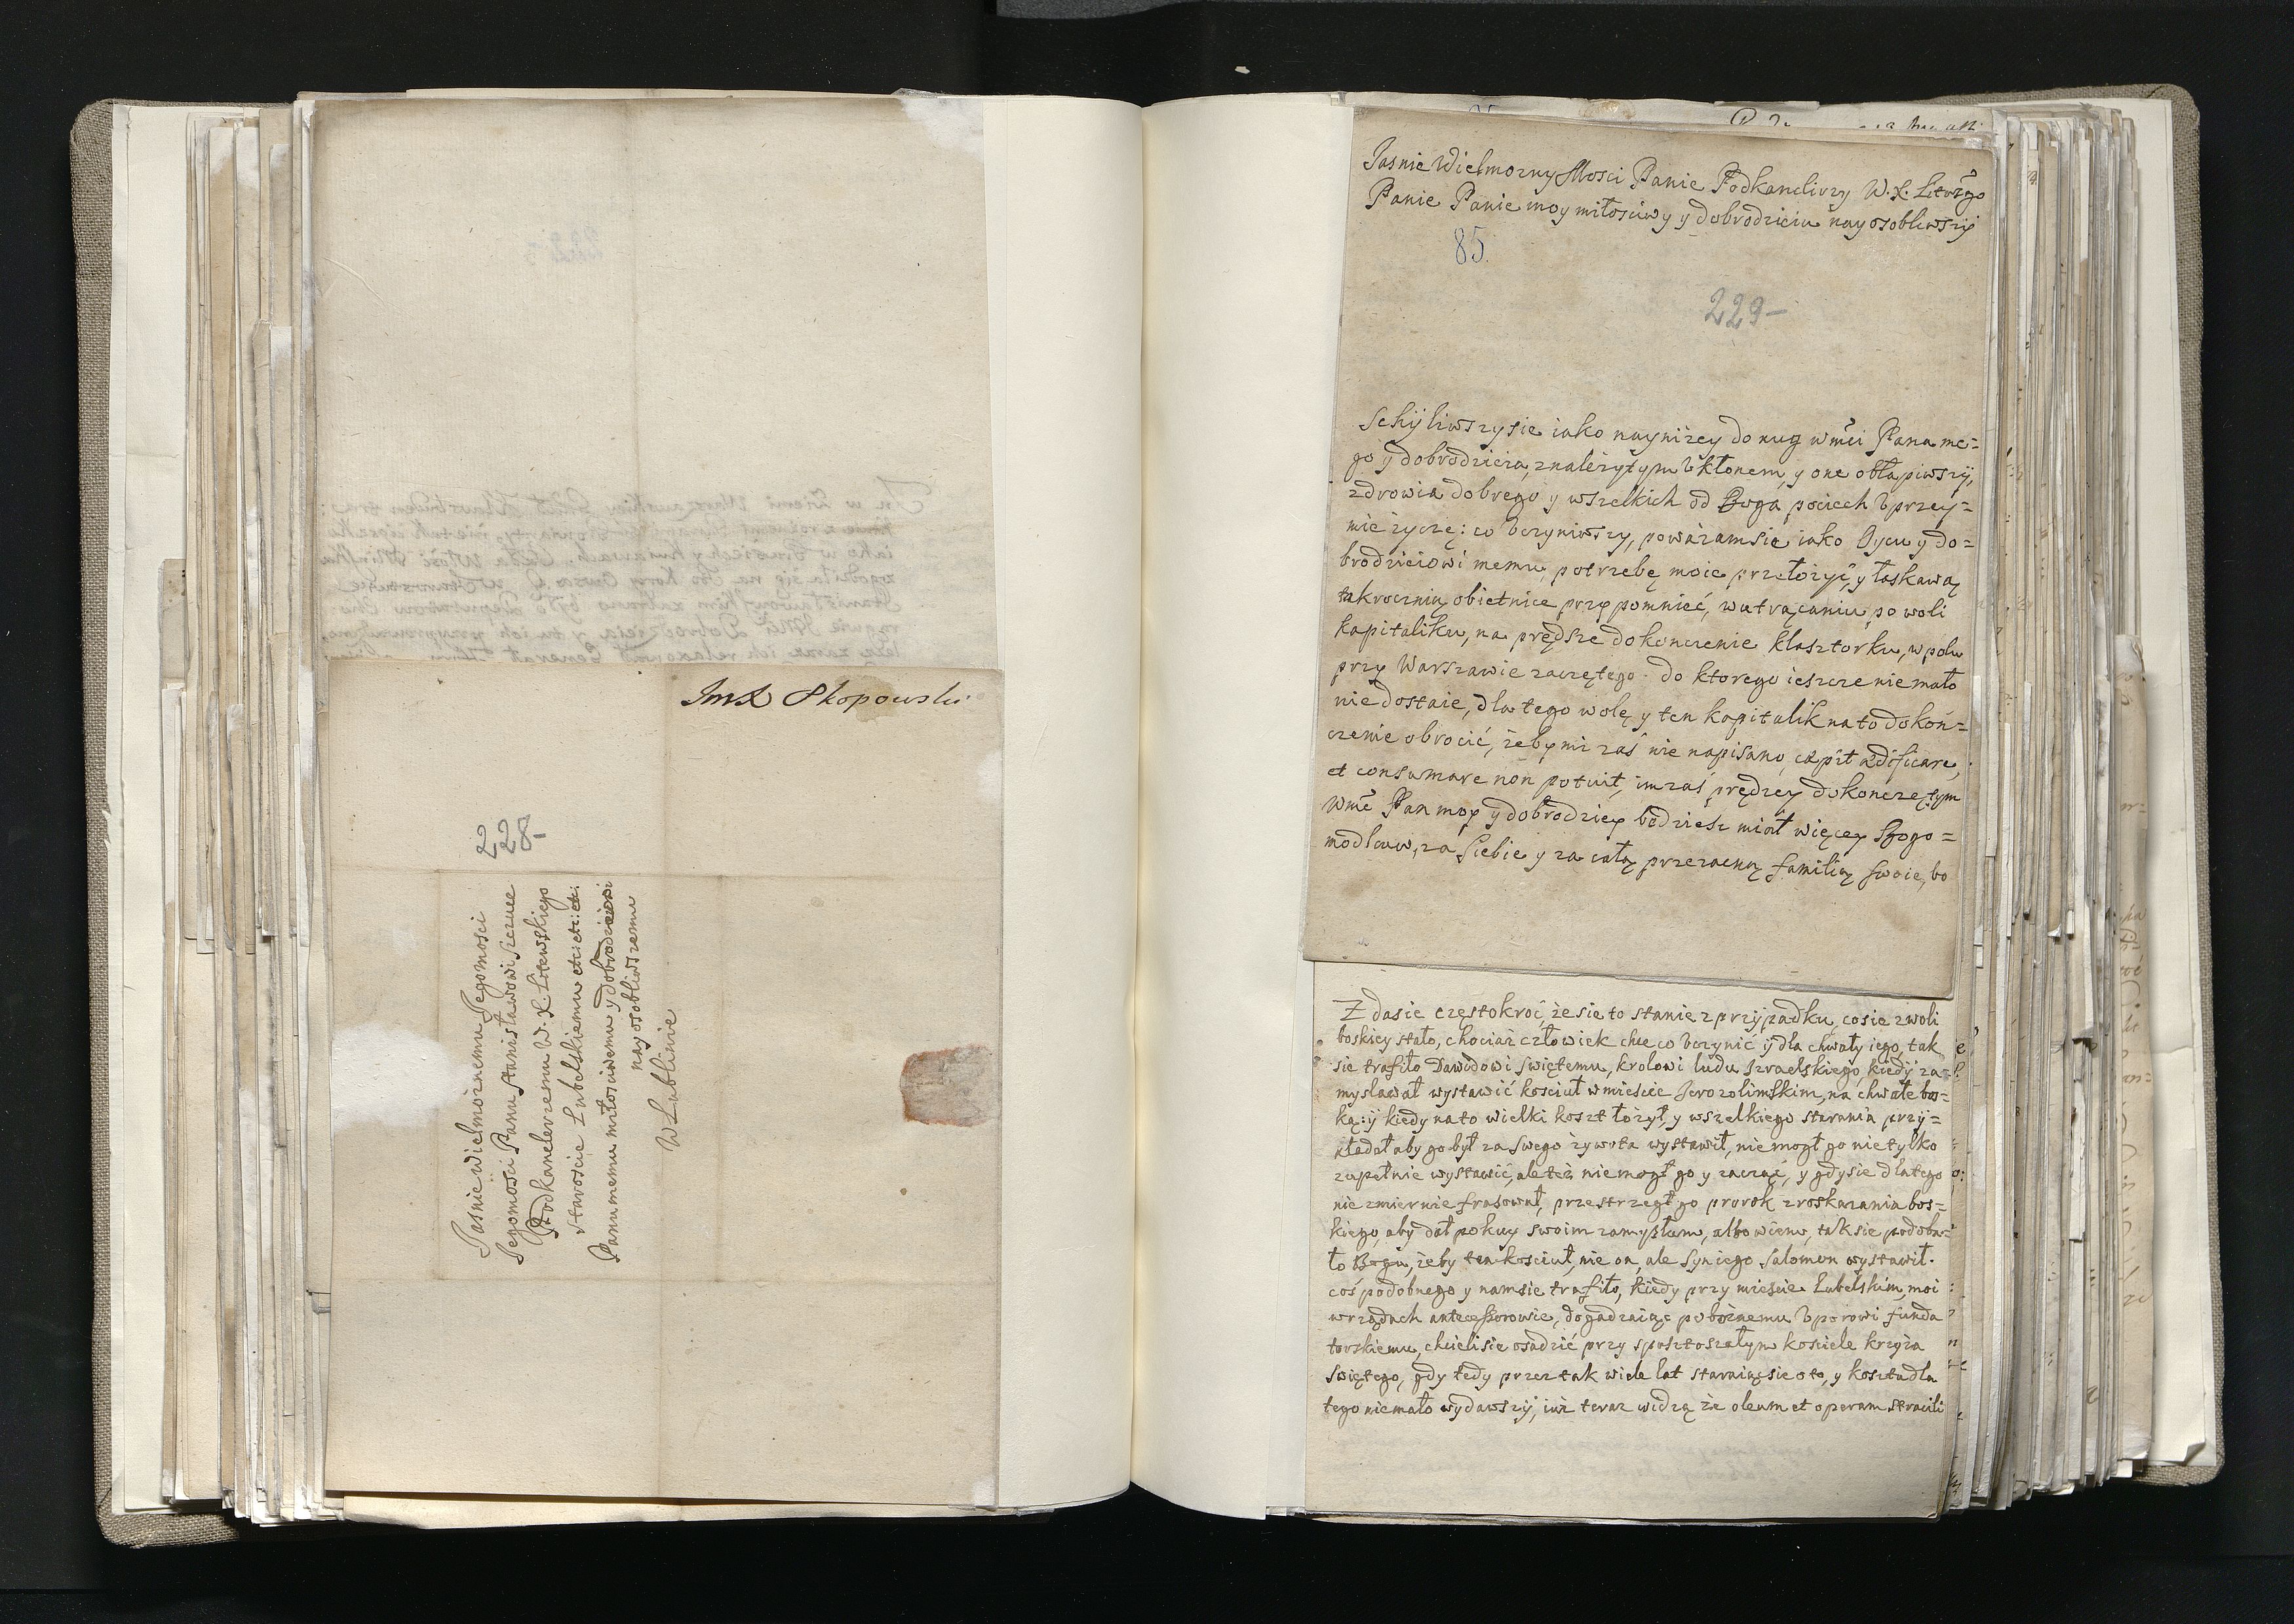 JmX Skopowski
228-
Jasnie Wielmoznemu Jegomosci
Jegomosci Panu Stanisławowi Szczuce
Podkanclerzemu W. X. Litewskiego
Staroscie Lubelskiemu etc: etc: etc:
Panu memu miłosciwemu y dobrodzieiowi
nayosobliwszemu
W Lublinie
Jasnie Wielmozny Mosci Panie Podkanclirzy W. X. Litto
Panie Panie moy miłosciwy y dobrodzieiu nayosobliwszy
85.
229-
Schyliwszysie iako nayniżey do nug wmci Pana me=
go y dobrodzieia, znależytym Vkłonem, y one obłapiwszy,
zdrowia dobrego y wszelkich od Boga pociech Vprzey=
mie życzę: co Vczyniwszy, poważamsie iako Oycu y do=
brodzieiowi memu, potrzebę moie przełożyć, y łaskawą
takrocznią obietnice przypomnieć, wutrącaniu, po woli
kapitaliku, na prędsze dokonczenie klasztorku, w polu
przy Warszawie zaczętego. do ktorego ieszcze niemało
nie dostaie, dlatego wolę y ten kapitalik na to dokoń=
czenie obrocić, żeby mi zaś nie napisano, cæpit ædificare,
et consumare non potuit, im zaś prędzey dokonczę, tym
Wmć Pan moy y dobrodziey bodziesz miał więcey Bogo=
modlcuw, za siebie y za całą przezacną familią swoie, bo
Zdasie częstokroć, że sie to stanie z przypadku, co sie z woli
boskiey stało, chociaż człowiek chce co Vczynić y dla chwały iego, tak
sie trafiło Dawidowi Swiętemu, krolowi ludu Izraelskiego, kiedy za=
myslawał wystawić kosciuł w miescie Jerozolimskim, na chwałe bos=
ką: y kiedy na to wielki koszt łożył, y wszelkiego starania przy=
kładał aby go był za swego żywota wystawił, nie mogł go nie tylko
zupełnie wystawić, ale też nie mogł go y zacząć, y gdysie dlatego
niezmiernie frasował, przestrzegł go prorok z roskazania bos=
kiego, aby dał pokuy swoim zamysłum, albowiem, tak sie podoba=
ło Bogu, żeby ten kosciuł, nie on, ale syn iego Salomon wystawił.
coś podobnego y nam sie trafiło, kiedy przy miescie Lubelskim, moi
w rządach antecessorowie, dogadzaiąc pobożnemu Vporowi funda
torskiemu, chcieli sie osadzić przy spusztoszałym kosciele krzyża
Swiętego, gdy tedy przez tak wiele lat staraiąc sie o to, y kosztu dla
tego niemało wydawszy, iuż teraz widzą że oleum et operam stracili